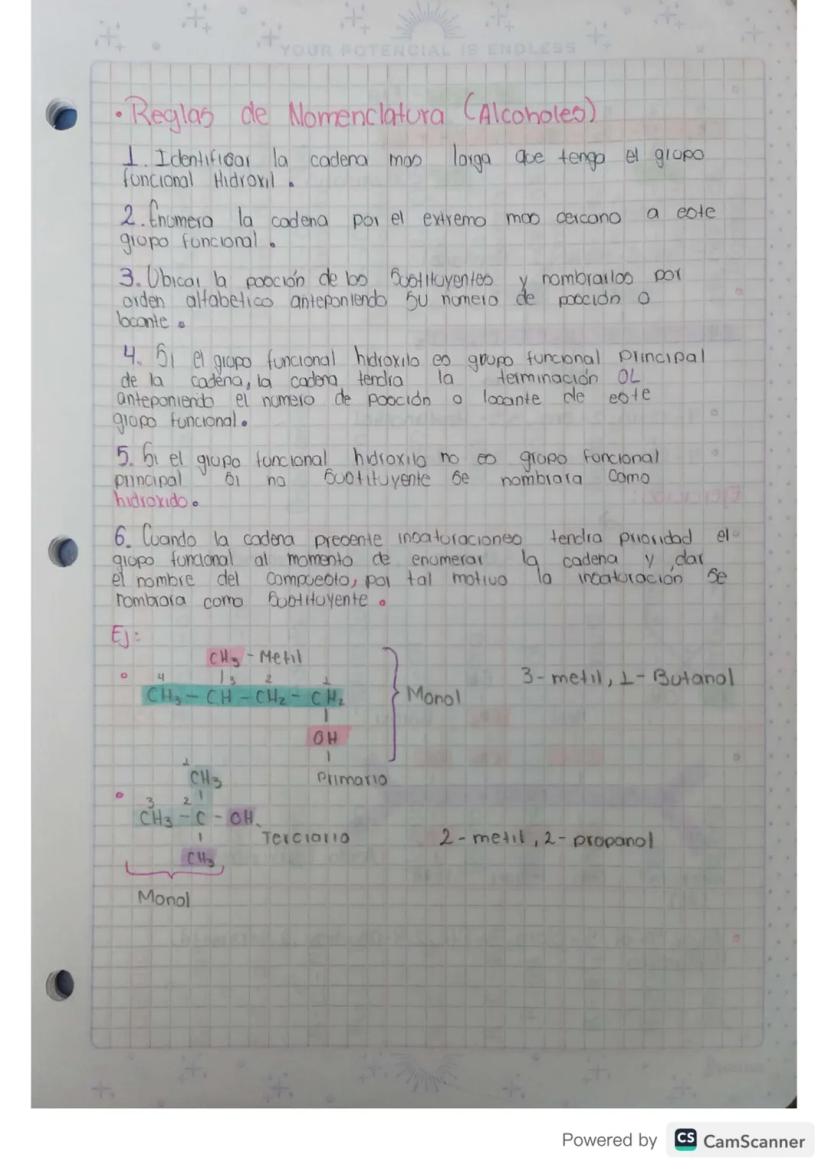 YOUR POTENCIAL IS ENDLESS
• Reglas de Nomenclatura (Alcoholes)
1. Identificar la cadena mas larga que tenga el grupo
funcional Hidroxil.
2. Enumera la cadena por el extremo mas cercano a este
grupo funcional.
3. Ubicar la posición de los Sustituyentes y nombrarlos por
orden alfabetico anteponiendo su numero de posición o
locante.
4. Si el grupo funcional hidroxilo es grupo funcional Principal
de la cadena, la cadena tendra la terminación OL
anteponiendo el numero de posción o locante de este
grupo funcional.
5. Si el grupo funcional hidroxilo no es grupo funcional
principal si no Sustituyente se nombrara como
hidroxido.
6. Cuando la cadena presente insaturaciones tendra prioridad el
grupo funcional al momento de enumerar la cadena y dar
el nombre del compuesto, por tal motivo la insaturación se
nombrara como Sustituyente.
Ej:
CH3 - Metil
4 3 2 1
CH3 - CH - CH2 - CH2
Monol
3-metil, 1-Butanol
OH
Primario
1
CH3
3 2
CH3 - C - OH
Terciario
2-metil, 2-propanol
CH3
Monol
Powered by CS CamScanner